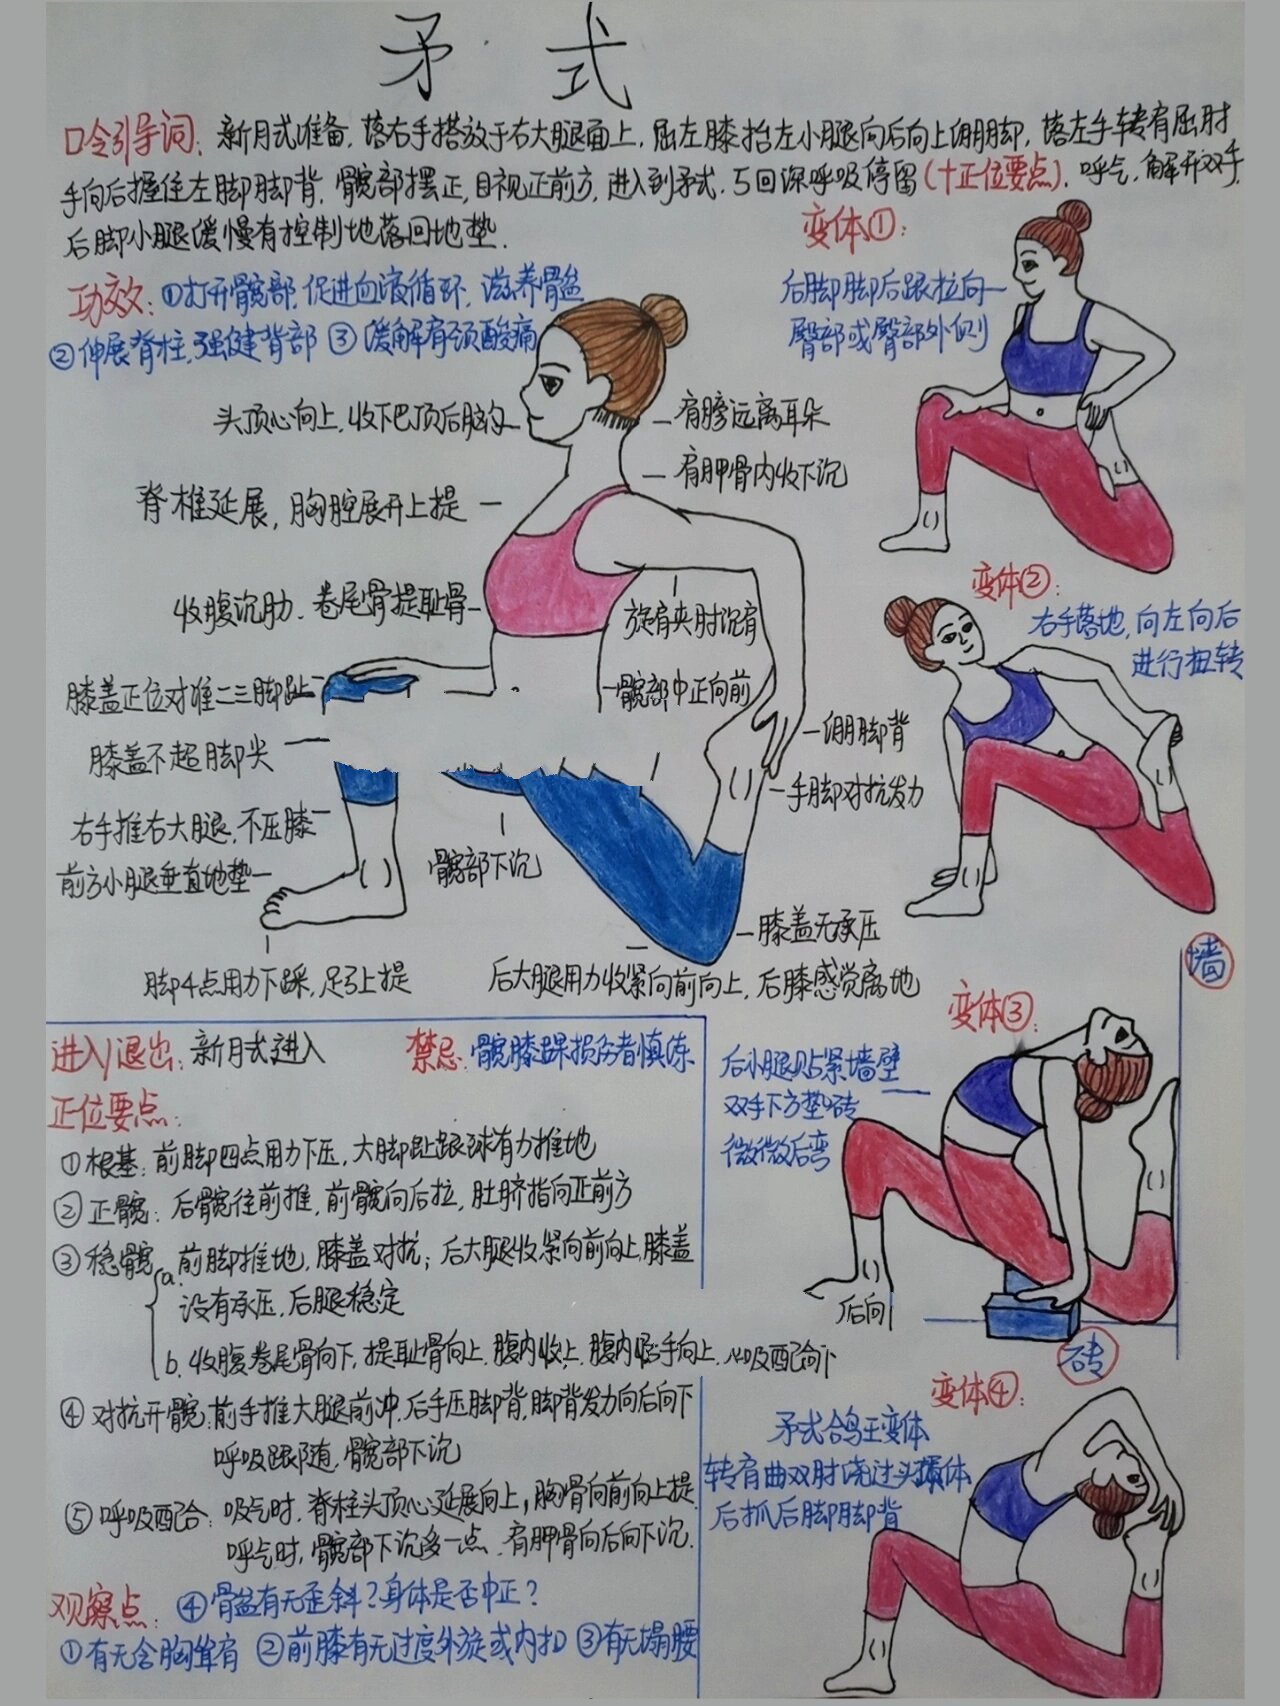 矛式
口令引导词：新月式准备，落右手搭放于右大腿面上，屈左膝抬左小腿向后向上绷脚，落左手转肩屈肘
手向后握住左脚脚背，髋部摆正，目视正前方，进入到矛式，5回深呼吸停留（十正位要点）．呼气，解开双手，
后脚小腿缓慢有控制地落回地垫．
功效：①打开髋部，促进血液循环，滋养骨盆
②伸展脊柱，强健背部 ③缓解肩颈酸痛
头顶心向上，收下巴顶后脑勺
肩膀远离耳朵
肩胛骨内收下沉
脊椎延展，胸腔展开上提
收腹沉肋．卷尾骨提耻骨
旋肩夹肘沉肩
膝盖正位对准二三脚趾
髋部中正向前
膝盖不超脚尖
绷脚背
手脚对抗发力
右手推右大腿，不压膝
前方小腿垂直地垫
髋部下沉
膝盖无承压
脚4点用力下踩，足弓上提
后大腿用力收紧向前向上，后膝感觉离地
变体①：
后脚脚后跟拉向
臀部或臀部外侧
变体②：
右手落地，向左向后
进行扭转
墙
变体③：
后小腿贴紧墙壁
双手下方垫砖
微微后弯
后向
砖
变体④：
矛式鸽王变体
转肩曲双肘绕过头
后抓后脚脚背
进入/退出：新月式进入
禁忌：髋膝踝损伤者慎练
正位要点：
①根基：前脚四点用力下压，大脚趾跟球有力推地
②正髋：后髋往前推，前髋向后拉，肚脐指向正前方
③稳髋 a.前脚推地，膝盖对抗；后大腿收紧向前向上，膝盖
没有承压，后腿稳定
b.收腹卷尾骨向下，提耻骨向上．腹内收上．腹内 手向上．呼吸配合
④对抗开髋：前手推大腿前冲，后手压脚背，脚背发力向后向下
呼吸跟随，髋部下沉
⑤呼吸配合：吸气时，脊柱头顶心延展向上，胸骨向前向上提
呼气时，髋部下沉多一点．肩胛骨向后向下沉．
观察点：④骨盆有无歪斜？身体是否中正？
①有无含胸耸肩 ②前膝有无过度外旋或内扣 ③有无塌腰